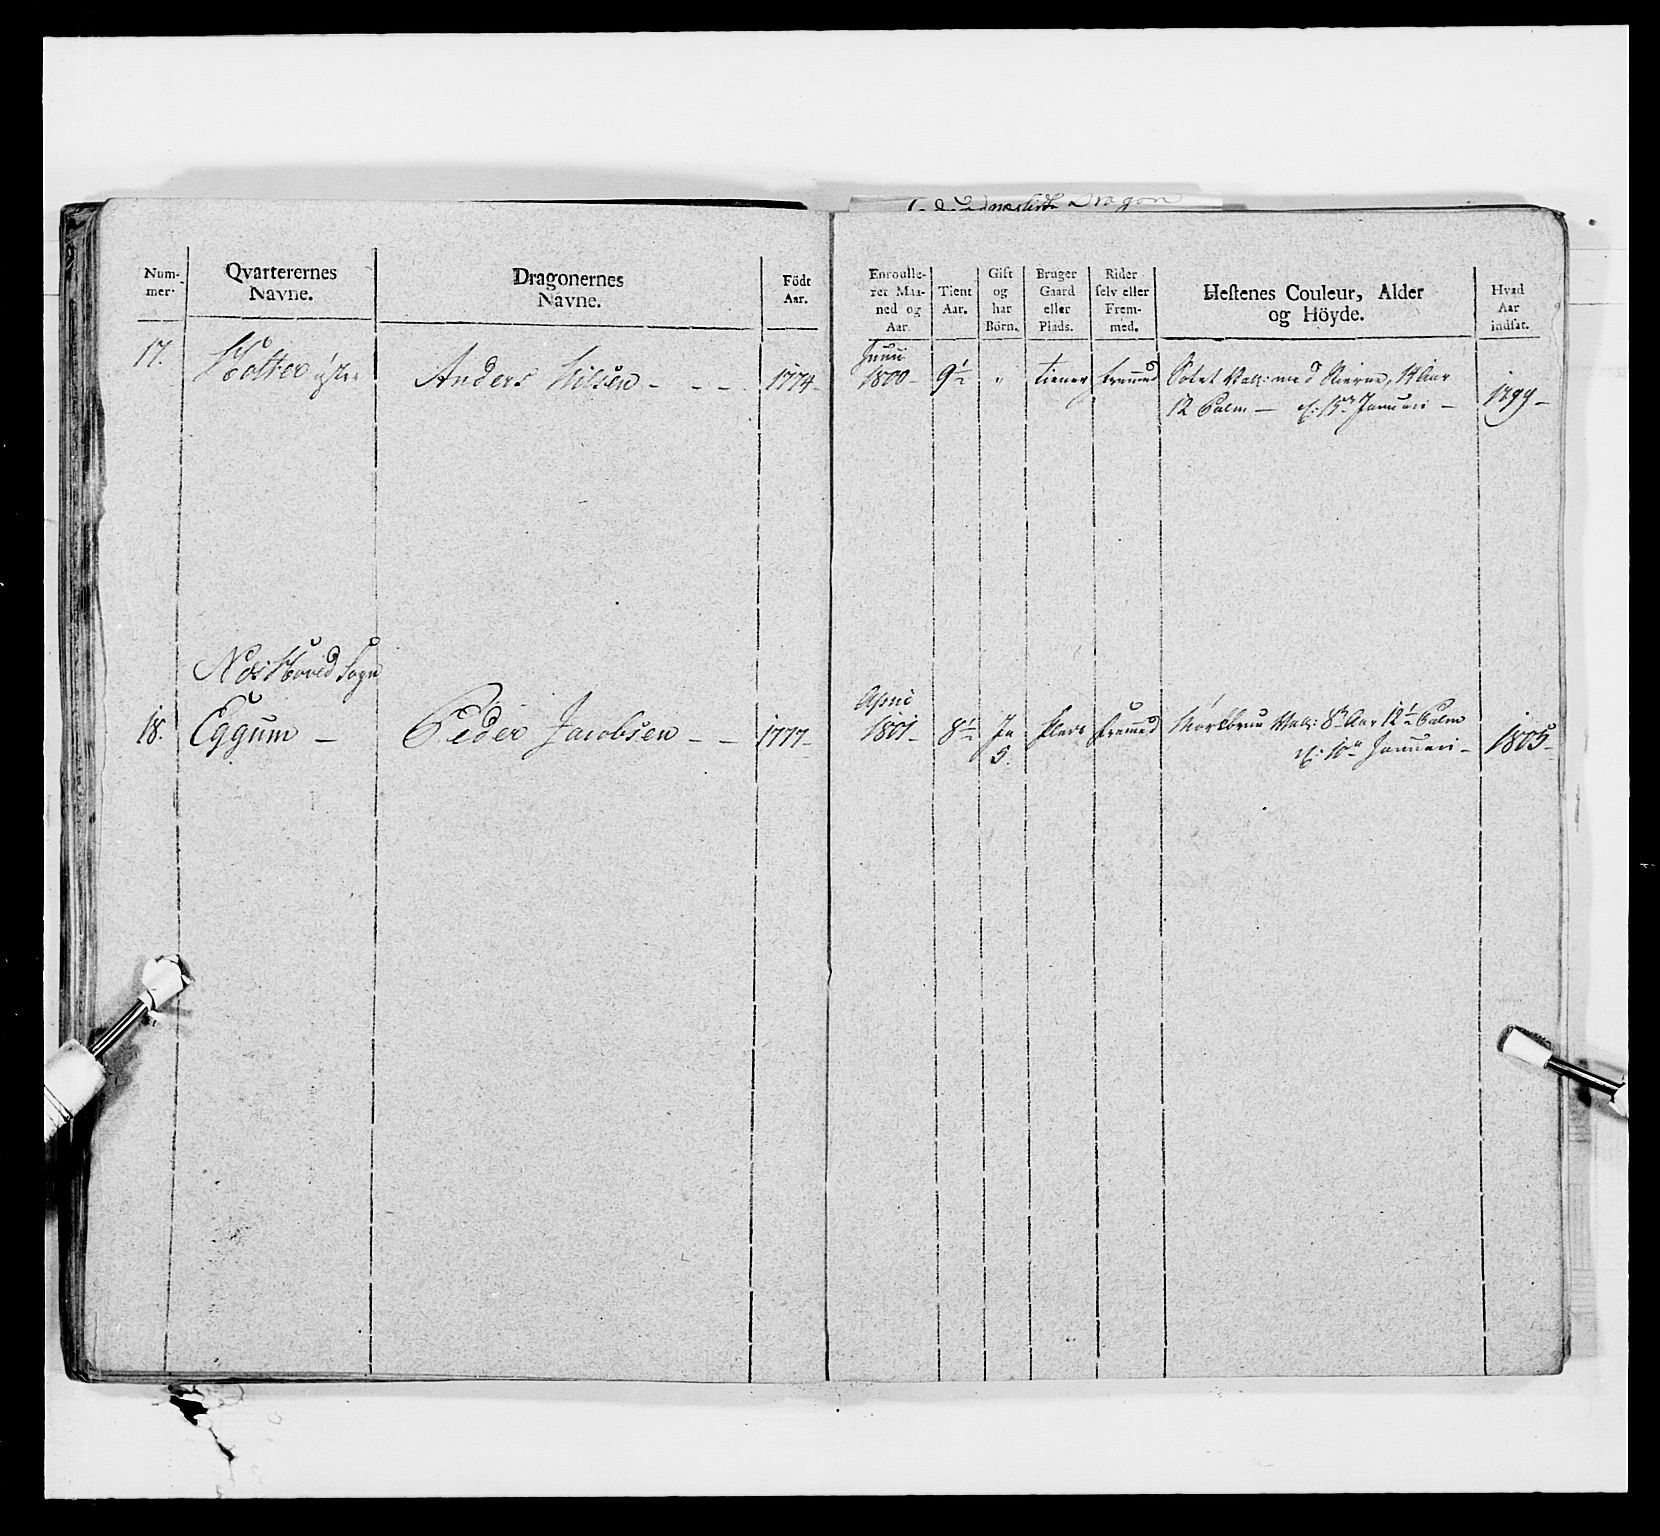 Dragon
Num-
mer.
Qvarterernes
Navne.
Dragonernes
Navne.
Födt
Aar.
Enroulle-
ret Maa-
ned og
Aar.
Tient
Aar.
Gift
og
har
Börn.
Bruger
Gaard
eller
Plads.
Rider
selv eller
Frem-
med.
Hestenes Couleur, Alder
og Höyde.
Hvad
Aar
indsat.
17.
Holter
Anders Nilsen - - -
1774
Junii
1800 -
9½
"
tiener
fremed
Sotet Val: med Stierne, 14 Aar
12 Palm — Januari —
1799 -
Næs Hoved Sogn
18.
Eggum —
Peder Jacobsen - -
1777 -
April
1801 -
8½
Ja
5.
Plads
fremed
Mörkbrun Val: 8 Aar 12½ Palm
Januari -
1805 -